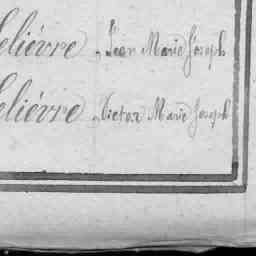 elièvre, Jean Marie Joseph
elièvre, Victor Marie Joseph